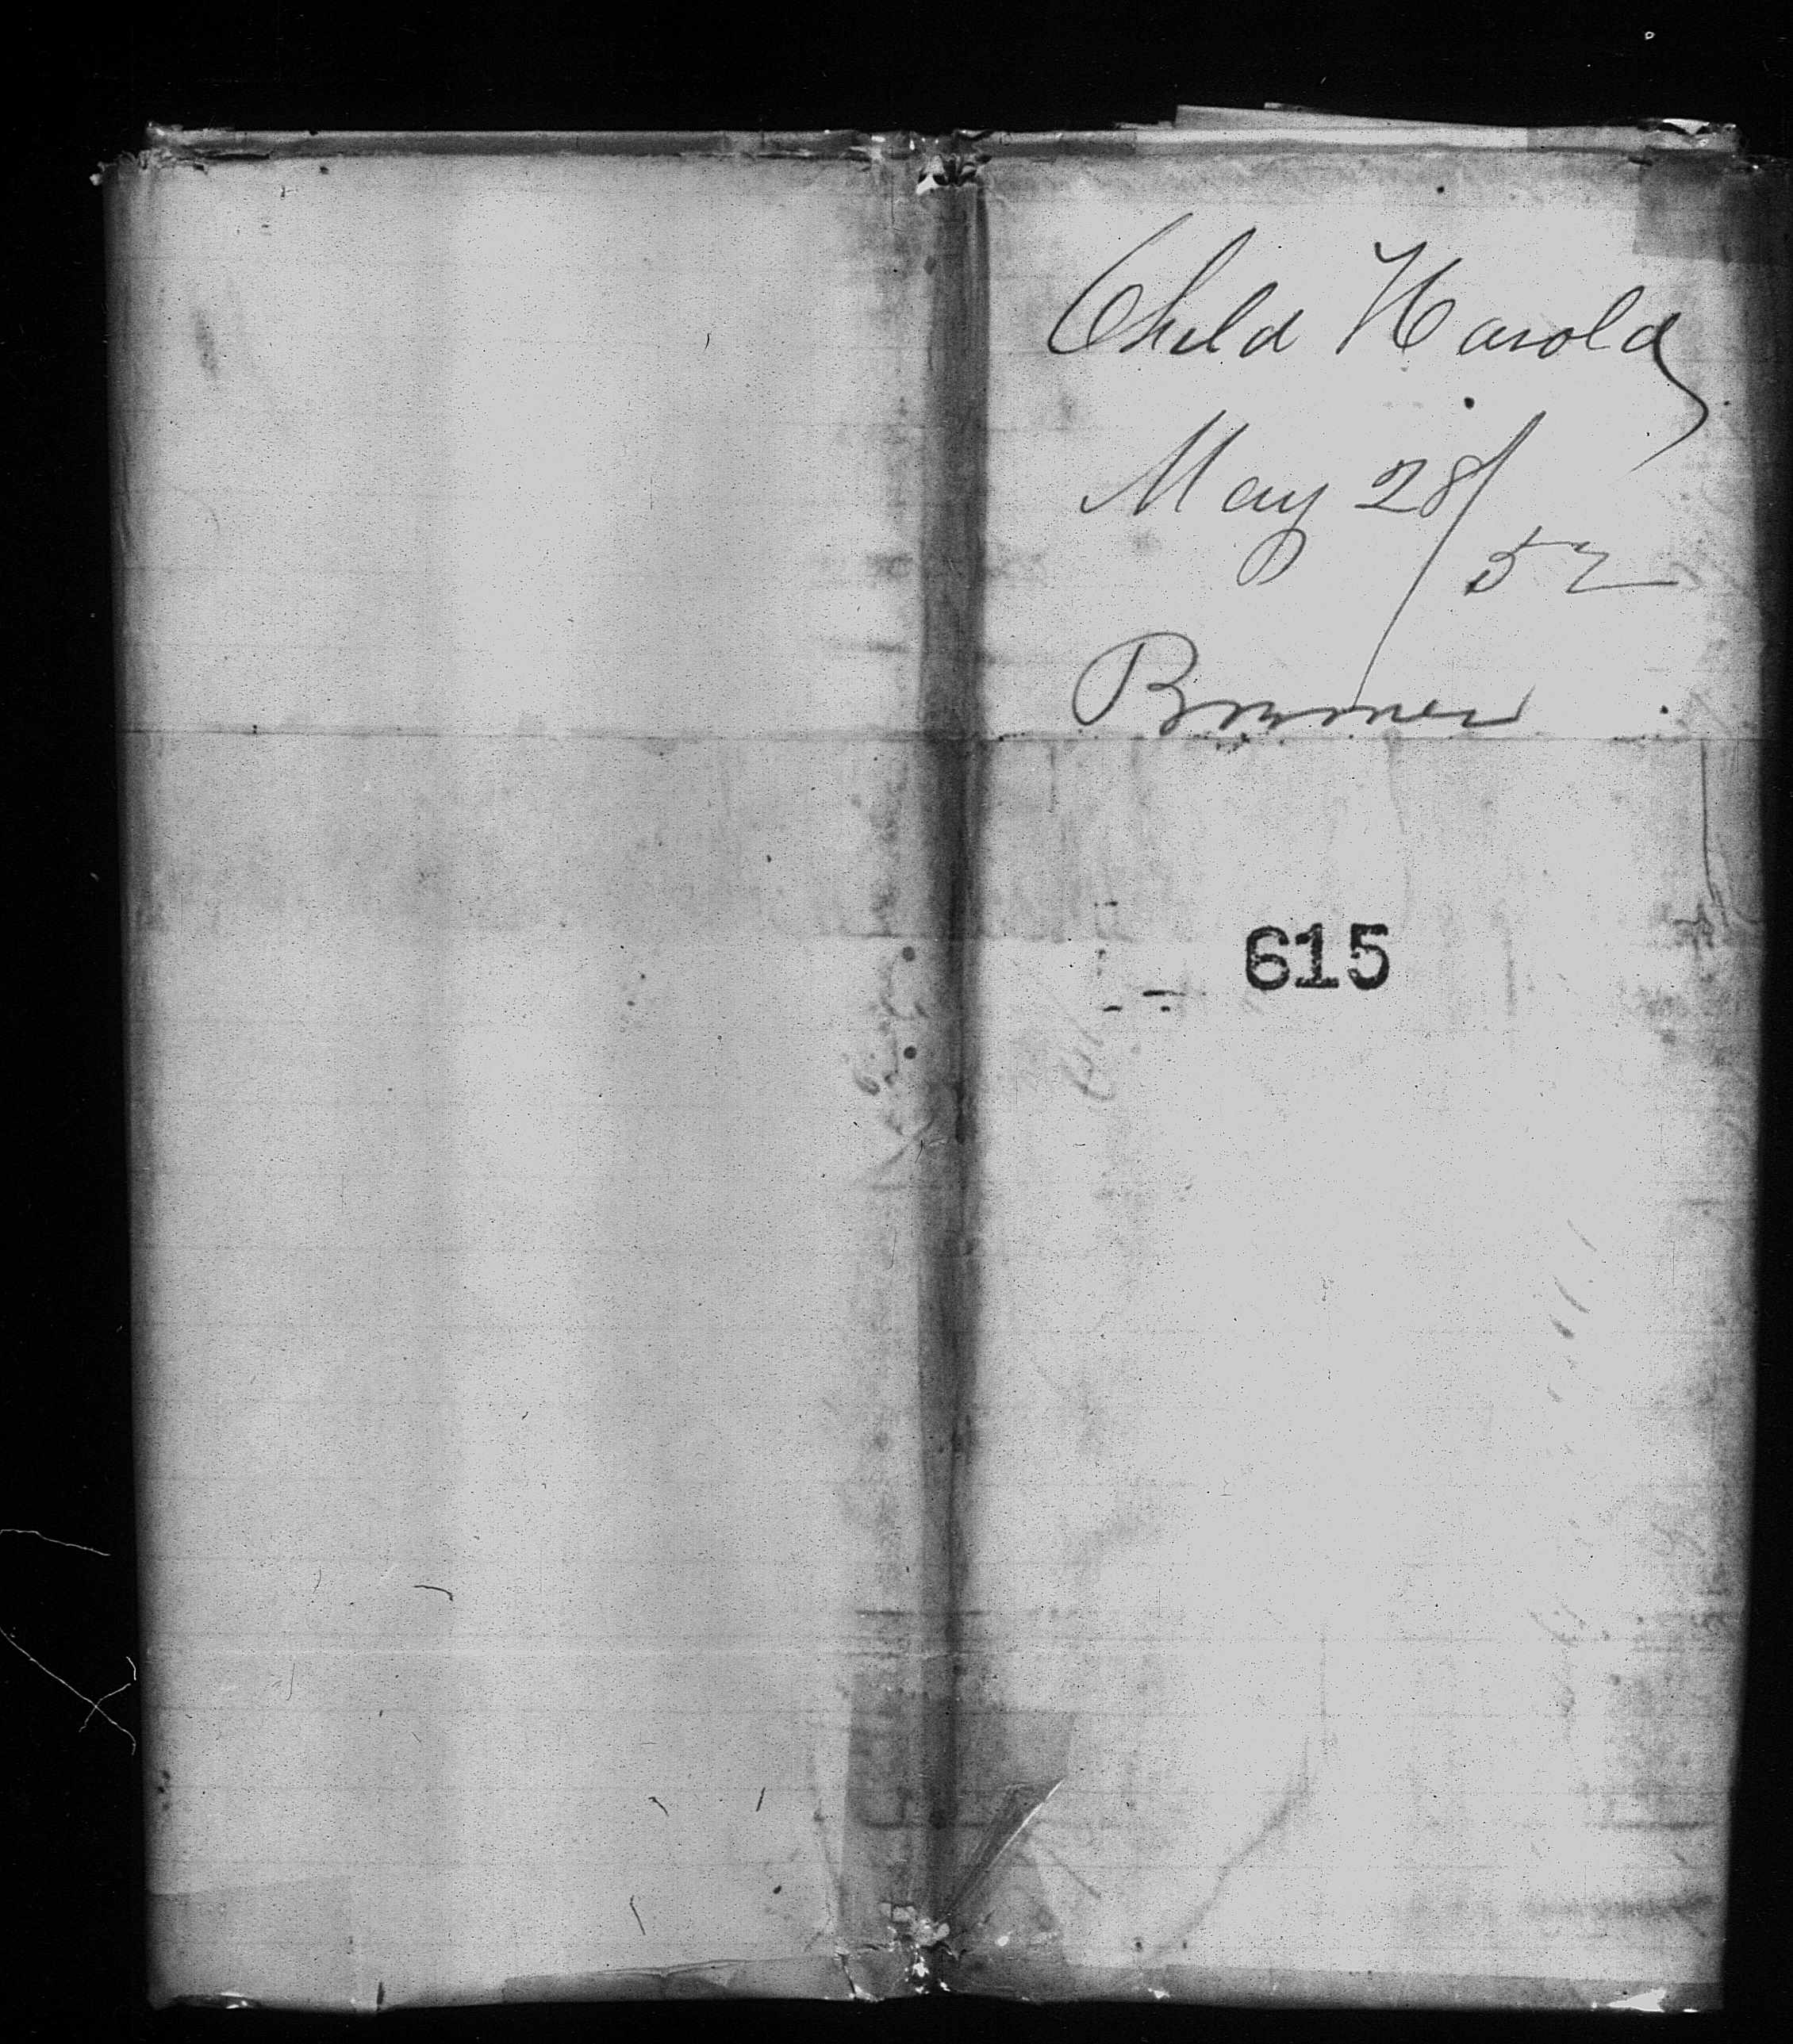 Child Harold
May 28/52
Bremen
615